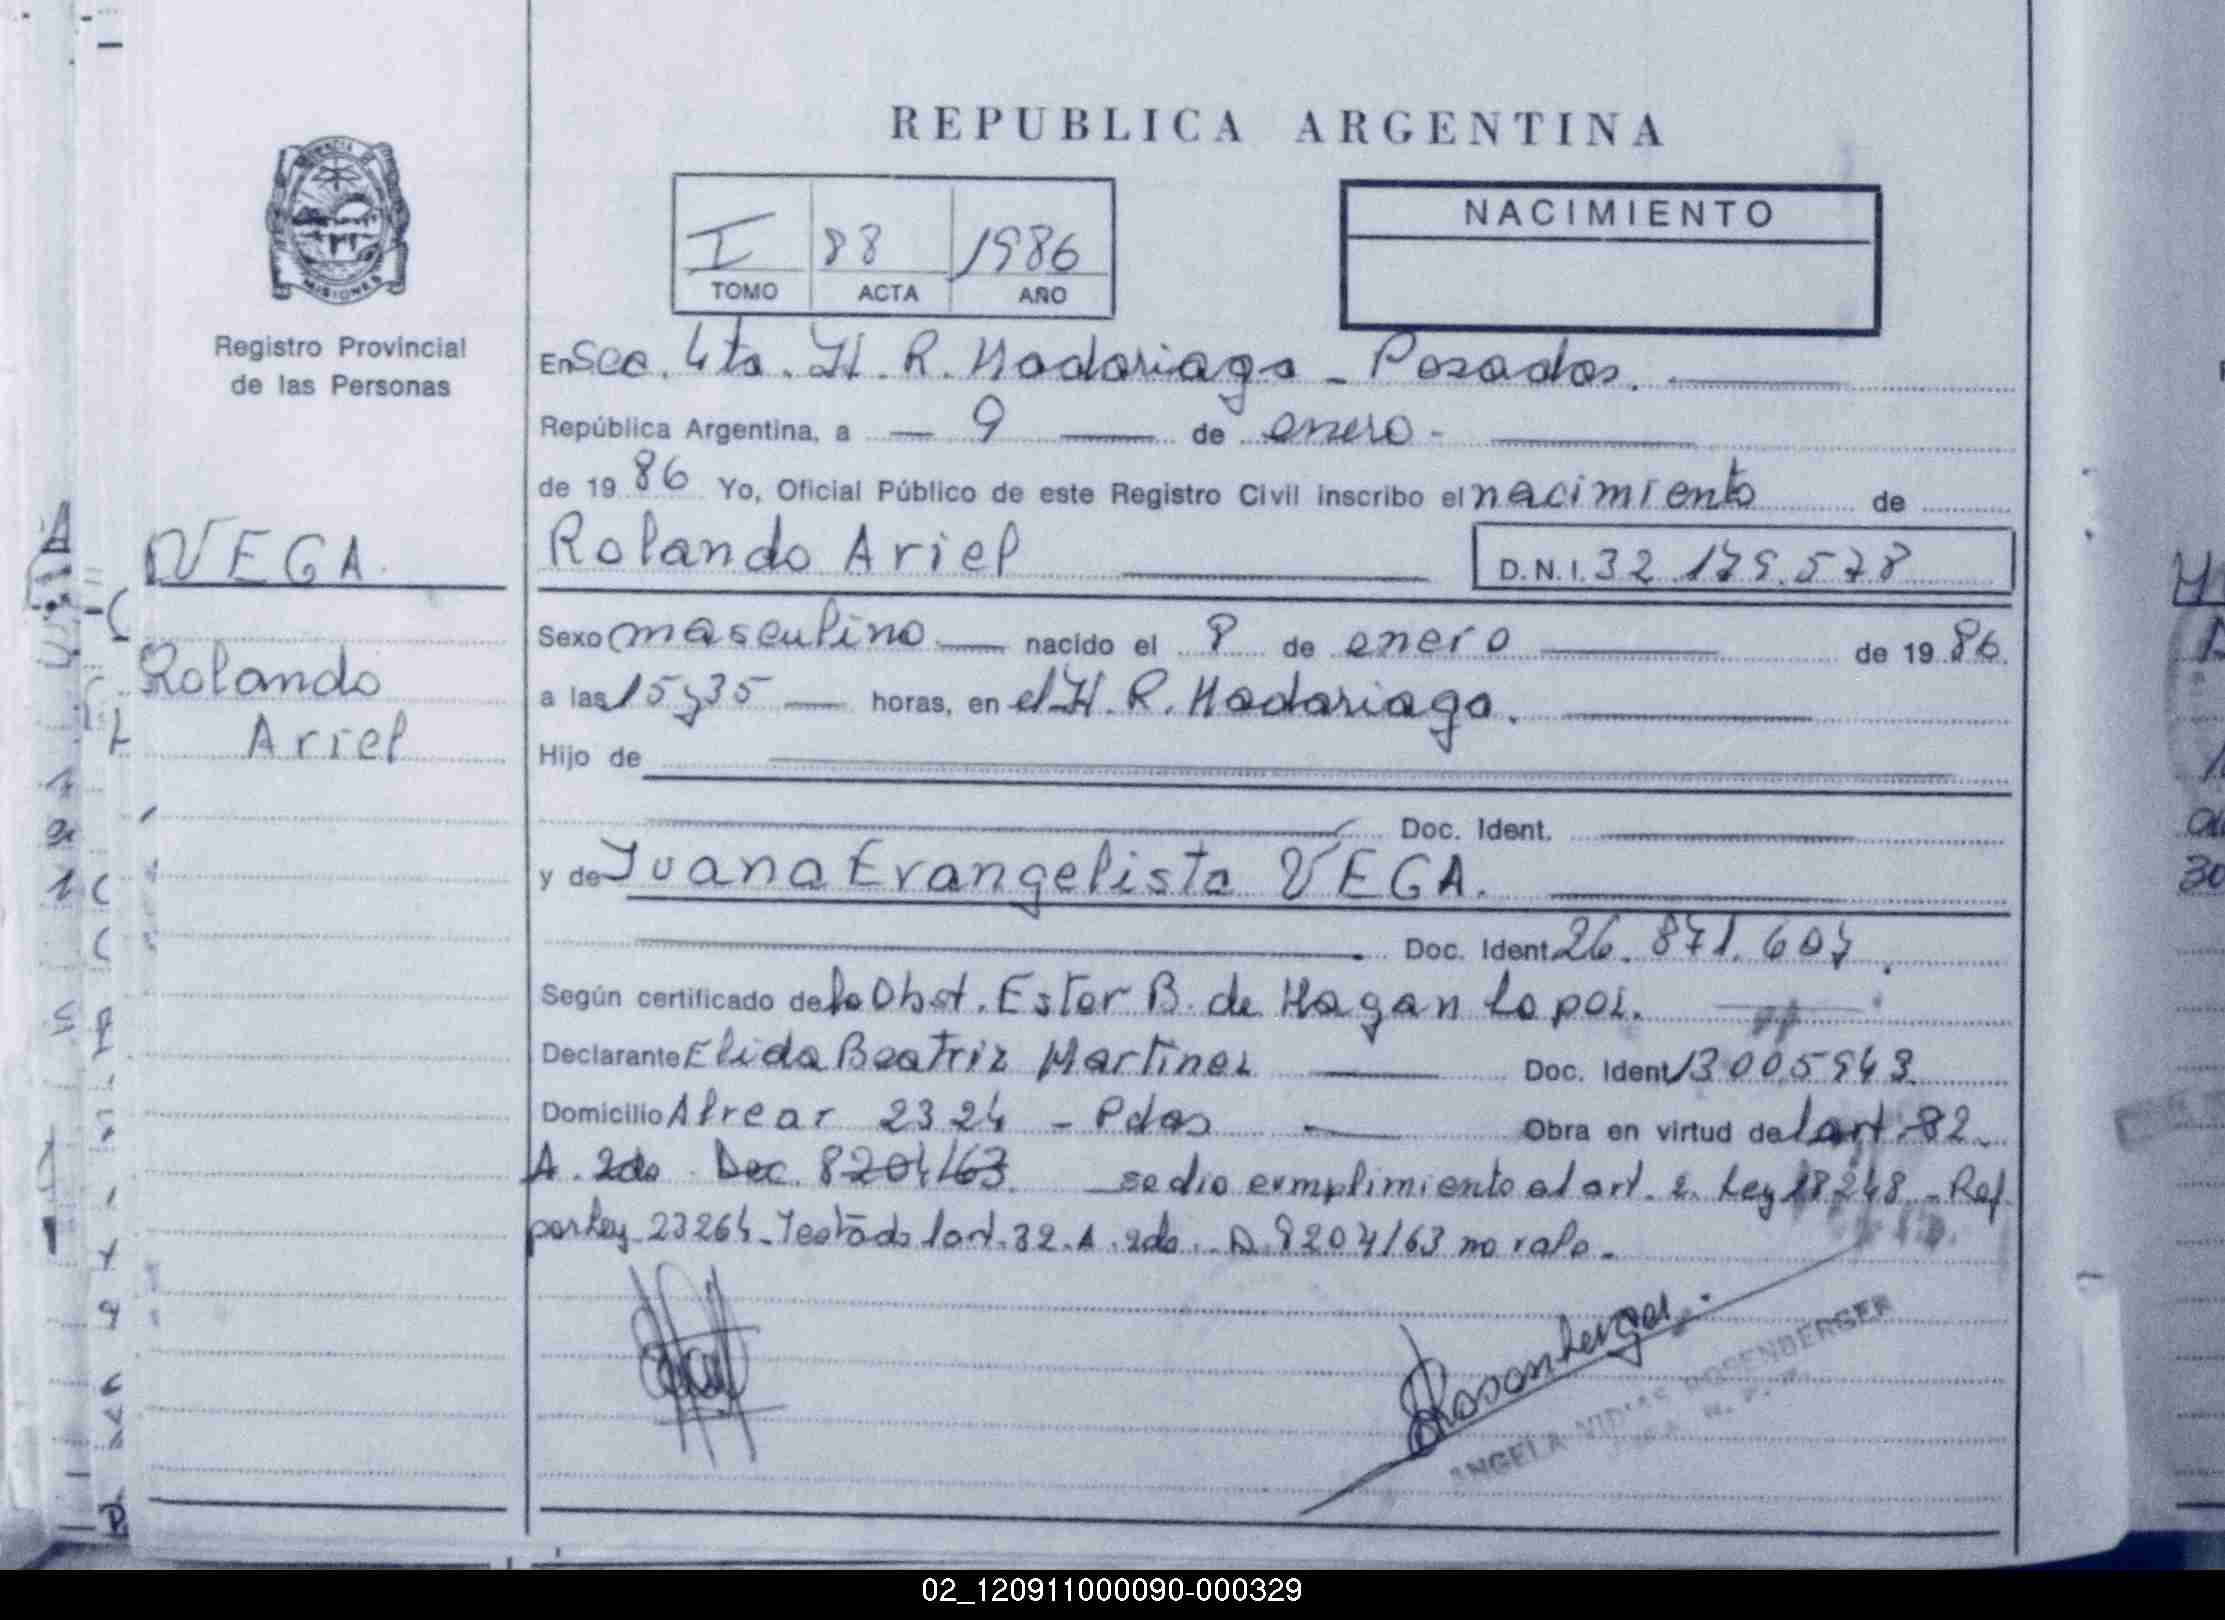 REPUBLICA ARGENTINA
I 88 1986
TOMO ACTA AÑO
NACIMIENTO
MISIONES
Registro Provincial
de las Personas
VEGA.
Rolando
Ariel
En Sec. 4ta. H. R. Madariaga - Posadas.
República Argentina, a 9 de enero -
de 19 86 Yo, Oficial Público de este Registro Civil inscribo el nacimiento de
Rolando Ariel D.N.I. 32.179.578
Sexo masculino nacido el 8 de enero de 19 86
a las 15 y 35 horas, en el H. R. Madariaga.
Hijo de
Doc. Ident.
y de Juana Evangelista VEGA.
Doc. Ident. 26.871.607.
Según certificado de la Obst. Ester B. de Hagan Lopez.
Declarante Elida Beatriz Martinez Doc. Ident. 13005943
Domicilio Alvear 2324 - Pdas Obra en virtud del art. 32
A. 2do Dec. 8204/63 se dio cumplimiento al art. 2. Ley 18248 - Ref.
por Ley 23264 - Testado l art. 32. A. 2do. D. 8204/63 no vale.
Rosenberger.
ANGELA ROSENBERGER
02_120911000090-000329